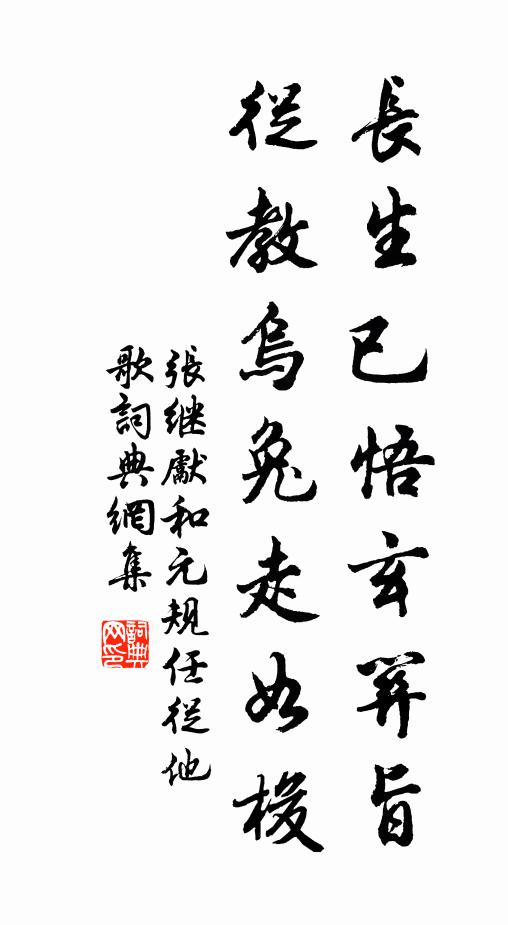 長生已悟玄關旨
從教烏兔走如梭
張继獻和元規任從他
歌詞典網集
詞典
网印